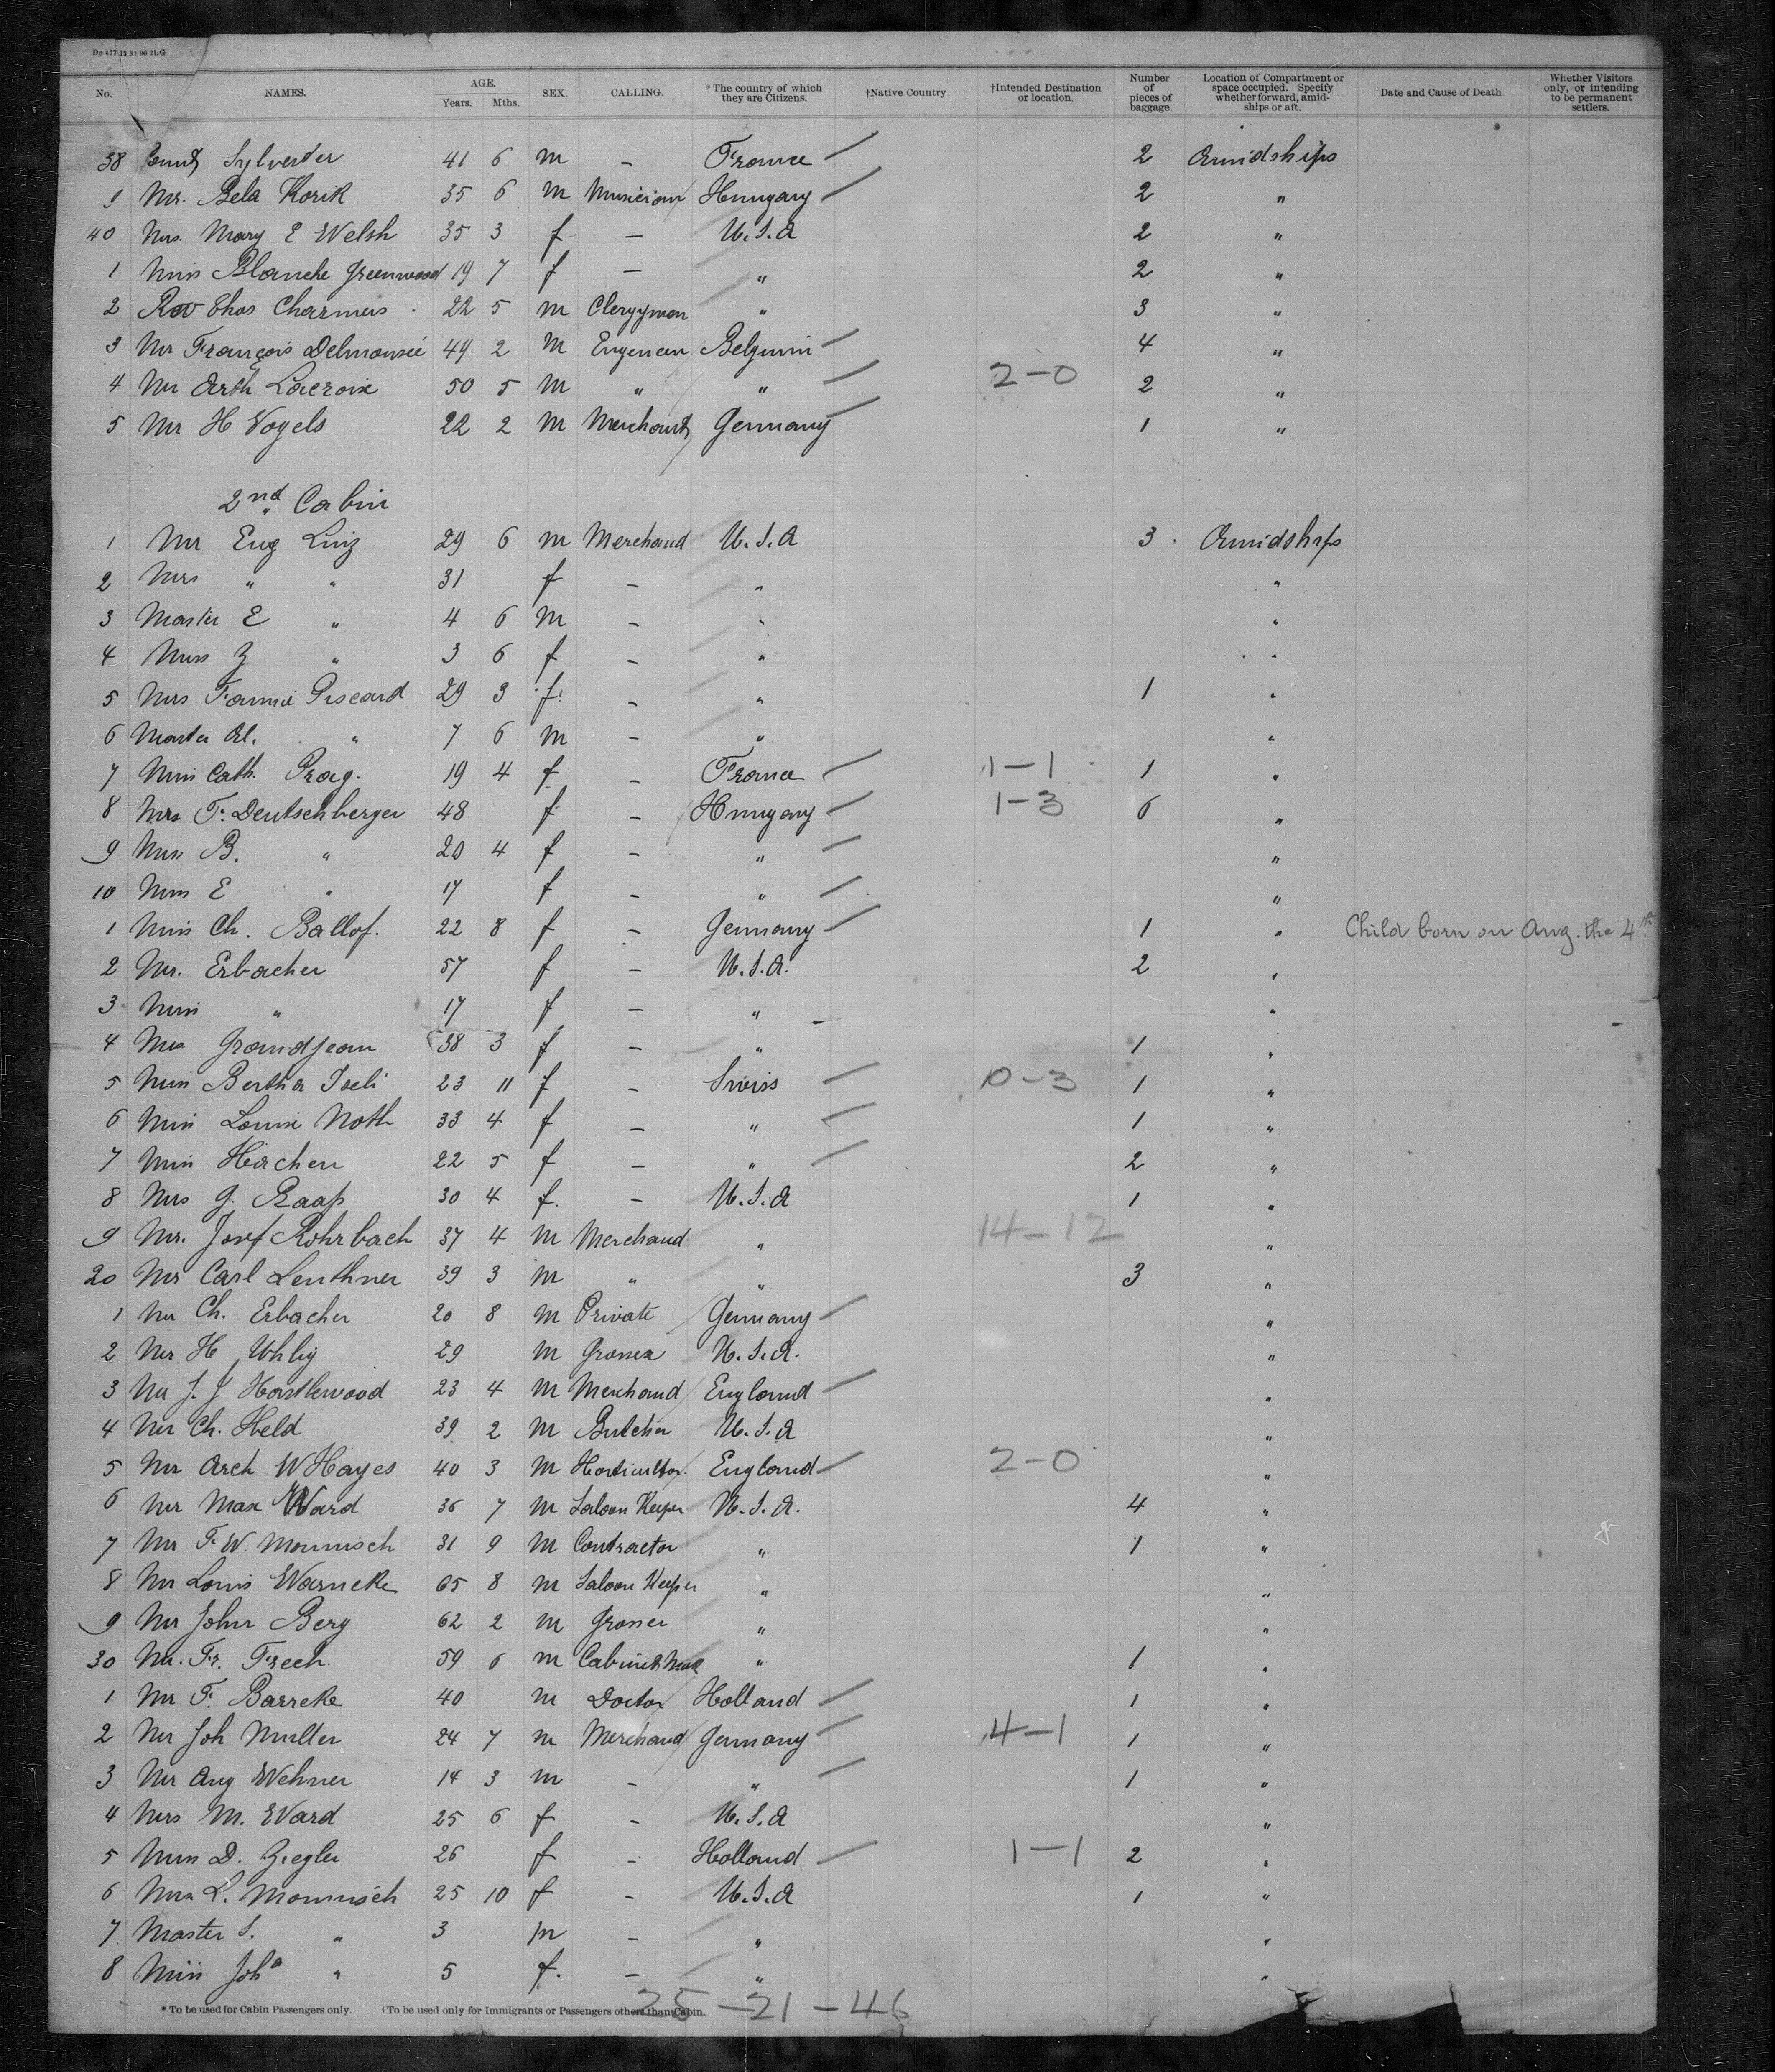 Do 477 12 31 96 2LG
No. NAMES. AGE. Years. Mths. SEX. CALLING. * The country of which they are Citizens. †Native Country †Intended Destination or location. Number of pieces of baggage. Location of Compartment or space occupied. Specify whether forward, amidships or aft. Date and Cause of Death Whether Visitors only, or intending to be permanent settlers.
38 Sylvester 41 6 m – France 2 Amidships
9 Mr. Bela Korik 35 6 m Musician Hungary 2 "
40 Mrs. Mary E Welsh 35 3 f – U.S.A 2 "
1 Miss Blanche Greenwood 19 7 f – " 2 "
2 Rev Thos Charmers 22 5 m Clergyman " 3 "
3 Mr François 49 2 m Engeneer Belgium 4 "
4 Mr Arth Lacroix 50 5 m " " 2-0 2 "
5 Mr H Vogels 22 2 m Merchant Germany 1 "
2nd Cabin
1 Mr Eug Linz 29 6 m Merchand U.S.A 3 Amidships
2 Mrs " " 31 f – " "
3 Master E " 4 6 m – " "
4 Miss Z " 3 6 f – " "
5 Mrs Fannie Piscard 29 3 f. – " 1 "
6 Master Al. " 7 6 m – " "
7 Miss Cath. Prag. 19 4 f – France 1-1 1 "
8 Mrs F. Deutschberger 48 f – Hungary 1-3 6 "
9 Miss B. " 20 4 f – " "
10 Miss E " 17 f – " "
1 Miss Ch. Ballof. 22 8 f – Germany 1 " Child born on Aug. the 4th
2 Mr. Erbacher 57 f – U.S.A. 2 "
3 Miss " 17 f – " "
4 Mrs Grandjean 38 3 f – " 1 "
5 Miss Bertha Iseli 23 11 f – Swiss 0-3 1 "
6 Miss Louise Noth 33 4 f – " 1 "
7 Miss Hirchen 22 5 f – " 2 "
8 Mrs G. Raap 30 4 f. – U.S.A 1 "
9 Mr. Josf Rohrbach 37 4 m Merchand " 14-12 "
20 Mr Carl Leuthner 39 3 m " " 3 "
1 Mr Ch. Erbacher 20 8 m Private Germany "
2 Mr H Uhlig 29 m Grosser U.S.A. "
3 Mr J. J Hastlewood 23 4 m Merchand England "
4 Mr Ch. Held 39 2 m Butcher U.S.A "
5 Mr Arch W Hayes 40 3 m Horticultor. England 2-0 "
6 Mr Max Ward 36 7 m Saloon Keeper U.S.A. 4 "
7 Mr F. W. Mounisch 31 9 m Contractor " 1 "
8 Mr Louis Warneke 65 8 m Saloon Keeper " "
9 Mr John Berg 62 2 m Grosser " "
30 Mr. Fr. Frech. 59 6 m Cabinet Mak " 1 "
1 Mr F. Barreke 40 m Doctor Holland 1 "
2 Mr Joh Muller 24 7 m Merchand Germany 4-1 1 "
3 Mr Aug Wehner 14 3 m – " 1 "
4 Mrs M. Ward 25 6 f – U.S.A "
5 Miss D. Ziegler 26 f – Holland 1-1 2 "
6 Mrs L. Mounisch 25 10 f – U.S.A 1 "
7. Master S. " 3 m – " "
8 Miss Joha " 5 f. – " "
* To be used for Cabin Passengers only. †To be used only for Immigrants or Passengers other than Cabin.
25-21-46
8